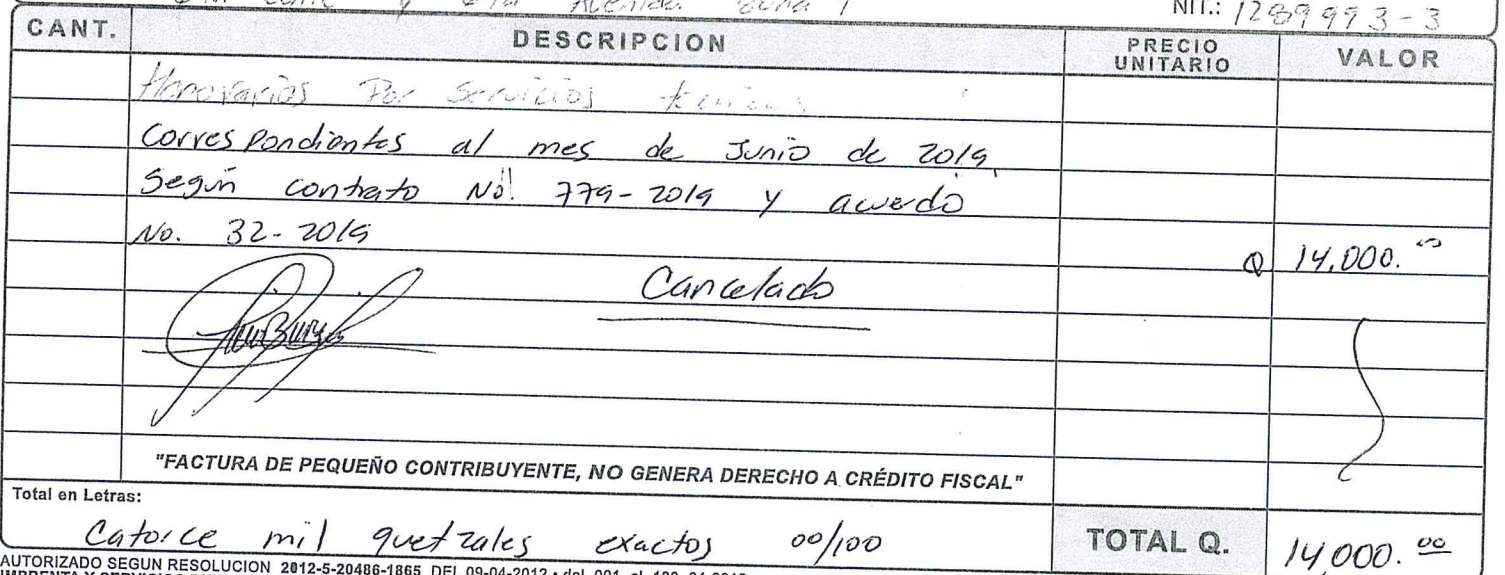 Calle y Avenida Zona 1
NIT.: 1289993-3
CANT. DESCRIPCION PRECIO UNITARIO VALOR
Honorarios Por Servicios técnicos
Correspondientes al mes de Junio de 2019
Según contrato No. 779-2019 y acuerdo
No. 32-2019 Q 14,000.00
Cancelado
"FACTURA DE PEQUEÑO CONTRIBUYENTE, NO GENERA DERECHO A CRÉDITO FISCAL"
Total en Letras:
Catorce mil quetzales exactos 00/100 TOTAL Q. 14,000.00
AUTORIZADO SEGUN RESOLUCION 2012-5-20486-1865 DEL 09-04-2012
IMPRENTA Y SERVICIOS